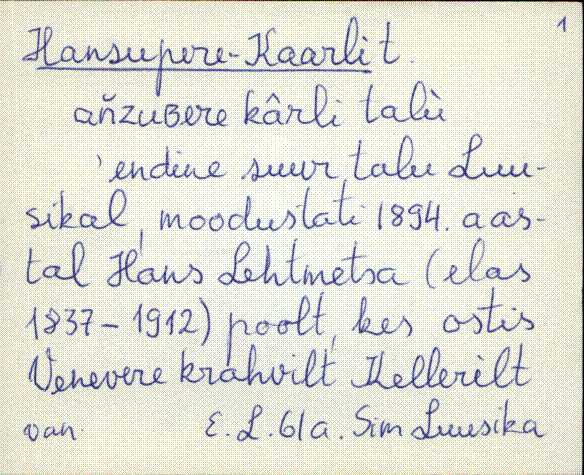 1
Hansupere-Kaarli t.
ańzuʙere kârli talù
'endine suur talu Luu-
sikal, moodustati 1894. aas-
tal Hans Lehtmetsa (elas
1837-1912) poolt, kes ostis
Venevere krahvilt Kellerilt
van. E. L. 61a. Sim Luusika